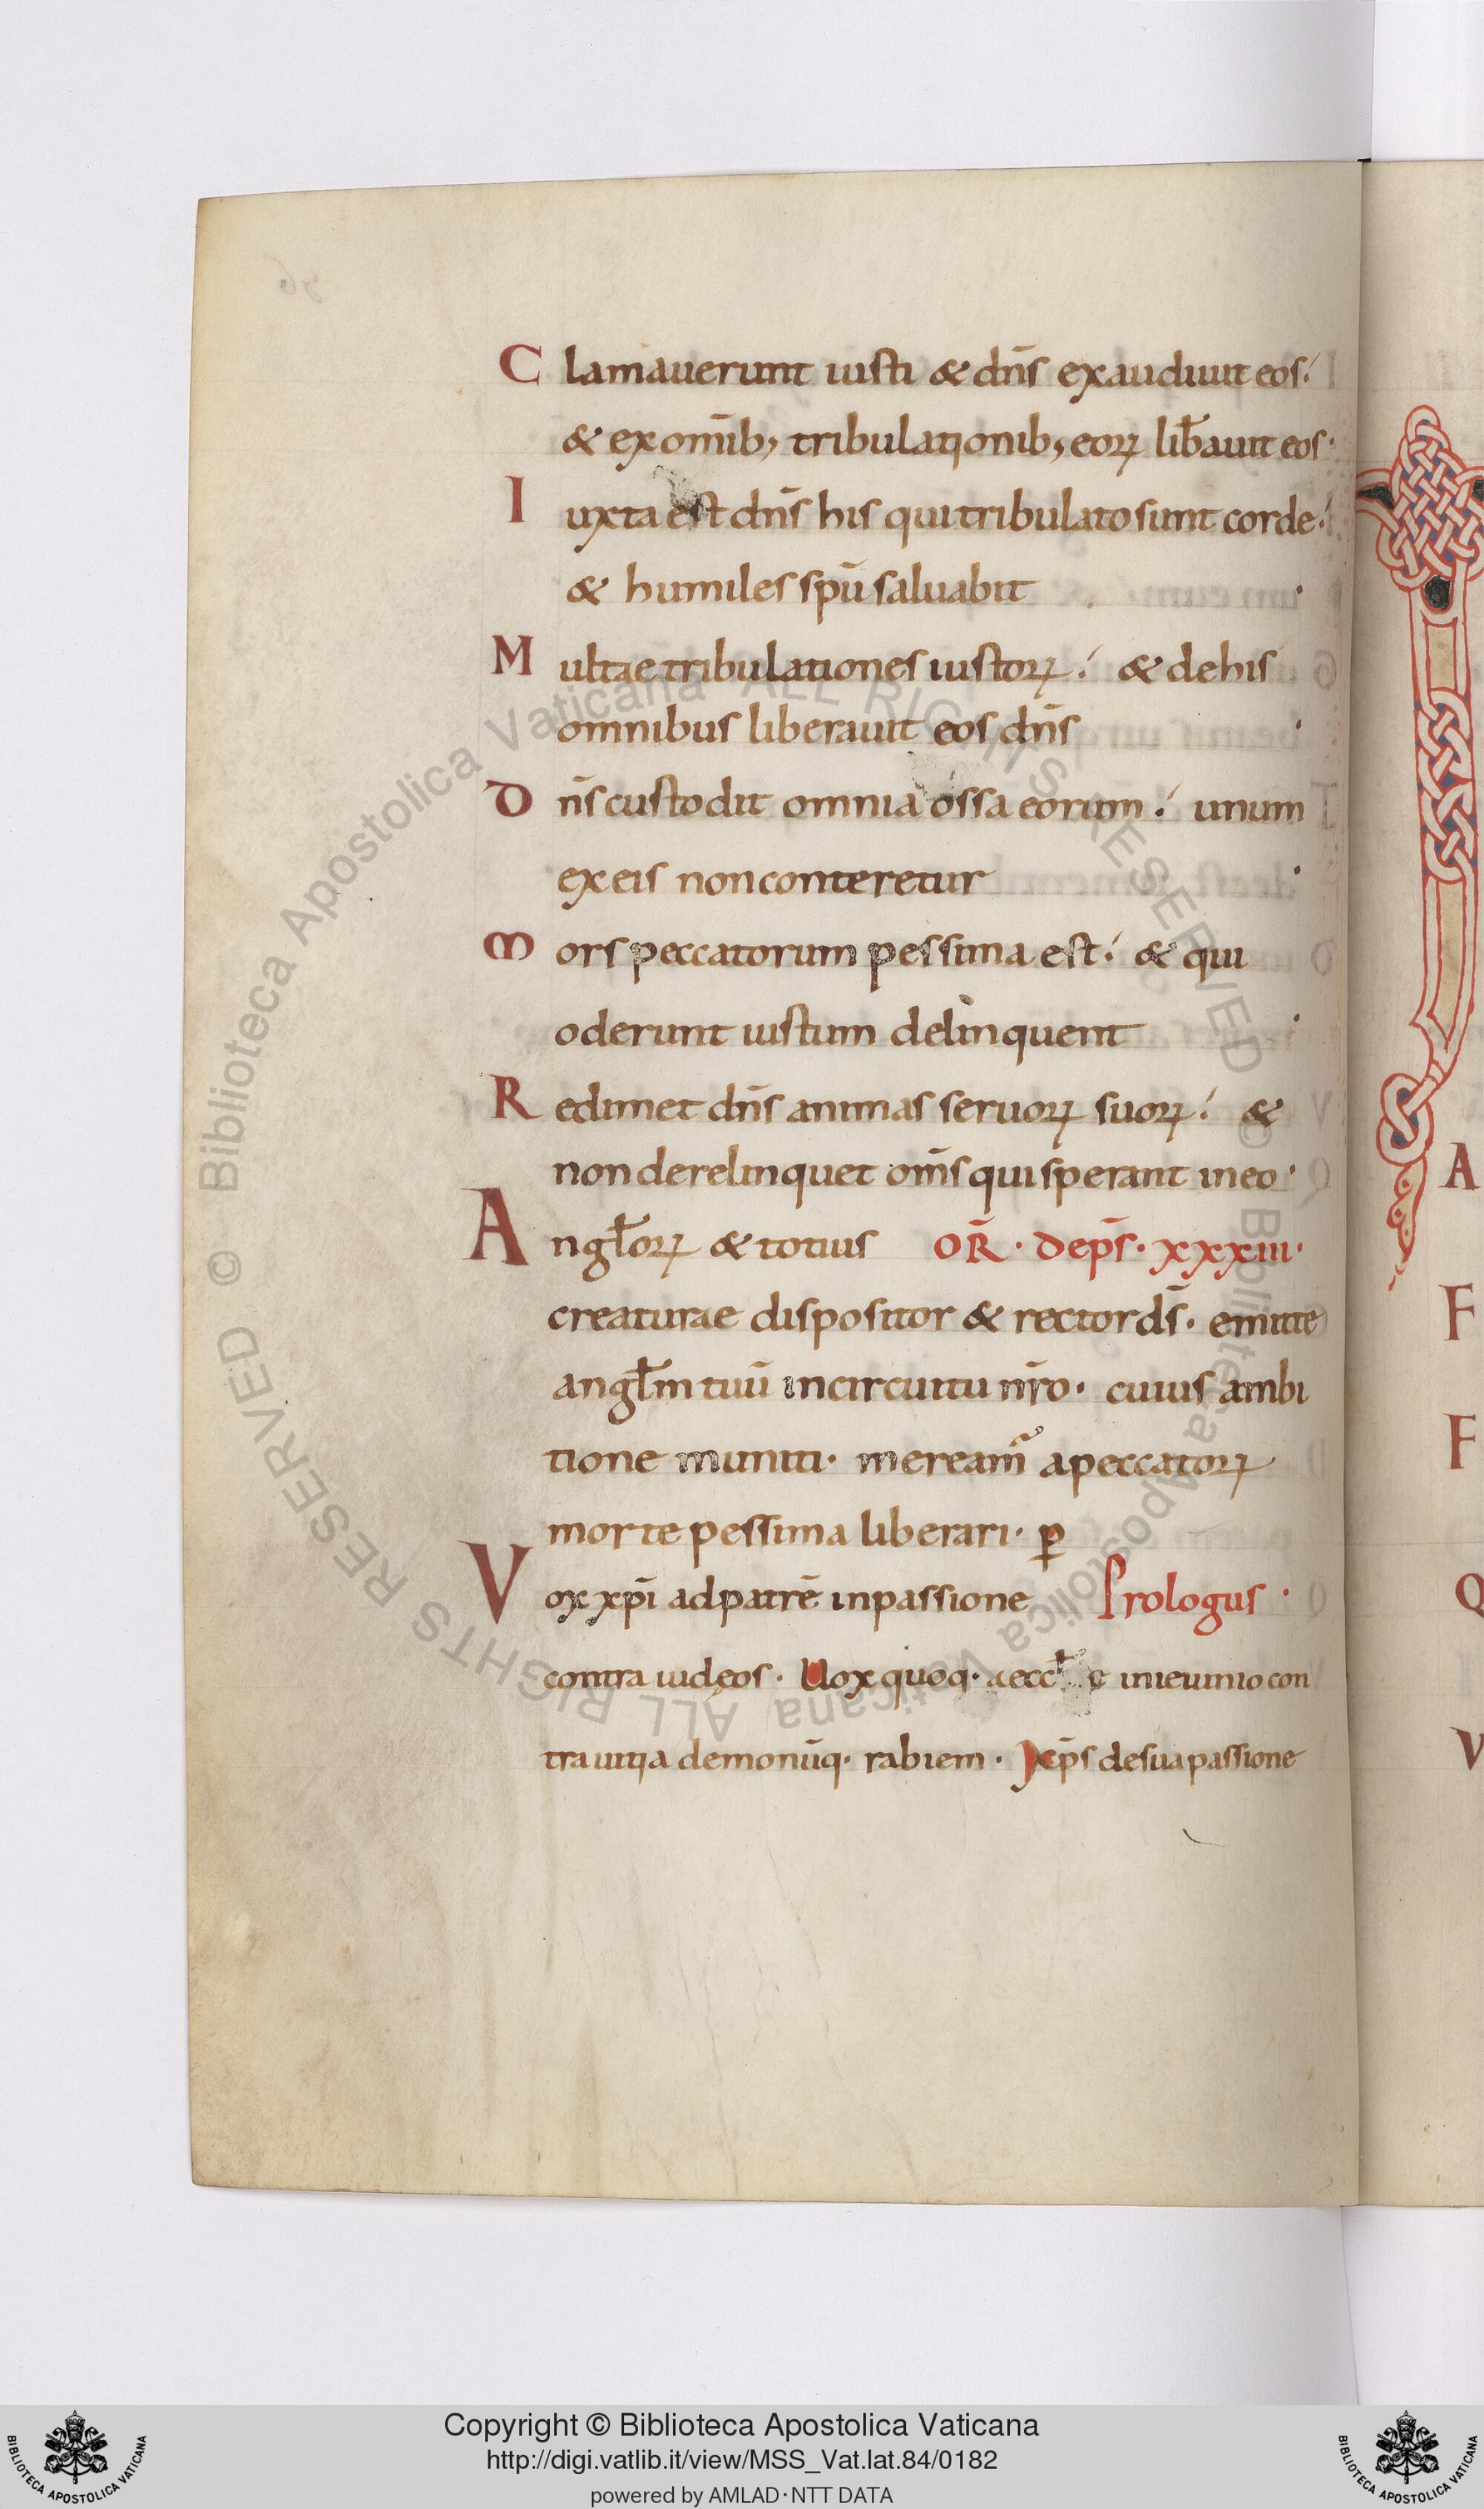 Clamauerunt iusti & dn̄s exaudiuit eos·
& ex om̄ib; tribulationib; eoꝝ lib̄auit eos·
Iuxta est dn̄s his qui tribulato sunt corde·
& humiles spū saluabit ·
Multae tribulationes iustoꝝ· & de his
omnibus liberauit eos dn̄s ·
Dn̄s custodit omnia ossa eorum· unum
ex eis non conteretur ·
Mors peccatorum pessima est· & qui
oderunt iustum delinquent ·
Redimet dn̄s animas seruoꝝ suoꝝ· &
non derelinquet om̄s qui sperant in eo·
Angl̄oꝝ & totius OR̄· De ps̄· xxxiii·
creaturae dispositor & rector ds̄· emitte
angl̄m tuū in circuitu nr̄o· cuius ambi
tione muniti· meream̄ a peccatoꝝ
morte pessima liberari· ꝑ
Vox xp̄i ad patrē in passione Prologus·
contra iudęos· Uox quoq· aeccl̄ę in ieiunio con
tra uitia demonūq· rabiem· Xp̄s de sua passione
A
F
F
Q
V
© Biblioteca Apostolica Vaticana ALL RIGHTS RESERVED © Biblioteca Apostolica Vaticana ALL RIGHTS RESERVED
Copyright © Biblioteca Apostolica Vaticana
http://digi.vatlib.it/view/MSS_Vat.lat.84/0182
powered by AMLAD·NTT DATA
BIBLIOTECA APOSTOLICA VATICANA
BIBLIOTECA APOSTOLICA VATICANA